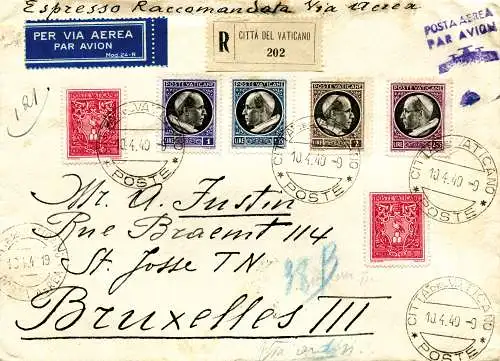 Espresso Raccomandata Via Aerea
PER VIA AEREA
PAR AVION
Mod. 24-R
R
CITTÀ DEL VATICANO
202
POSTA AEREA
PAR AVION
121
POSTE VATICANE
POSTE VATICANE
LIRE 1
POSTE VATICANE
LIRE
POSTE VATICANE
LIRE 2
POSTE VATICANE
LIRE
CITTÀ DEL VATICANO
10.4.40
POSTE
CITTÀ DEL VATICANO
10.4.40-9
POSTE
CITTÀ DEL VATICANO
10.4.40-9
POSTE
Mr. A. Justin
Rue Braemt 114
St. Josse TN
Bruxelles III
POSTE VATICANE
CITTÀ DEL VATICANO
10.4.40-9
POSTE